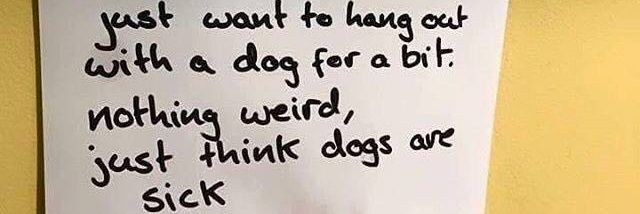 just want to hang out
with a dog for a bit.
nothing weird,
just think dogs are
sick